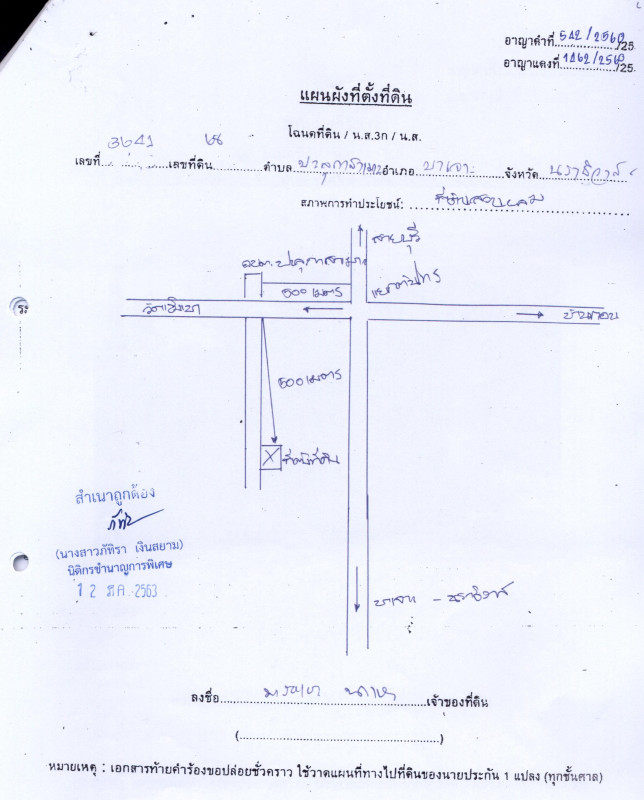 อาญาดำที่ 542/2560 /25
อาญาแดงที่ 1462/2560 /25
แผนผังที่ตั้งที่ดิน
โฉนดที่ดิน / น.ส.3ก / น.ส.
เลขที่ 3641 เลขที่ดิน ตำบล ปะลุกาสาเมาะ อำเภอ บาเจาะ จังหวัด นราธิวาส
สภาพการทำประโยชน์:
สายบุรี
อบต.ปะลุกาสาเมาะ
500 เมตร
บ้านทอน
500 เมตร
X ที่ตั้งที่ดิน
สำเนาถูกต้อง
(นางสาวภัทิรา เงินสยาม)
นิติกรชำนาญการพิเศษ
12 มี.ค. 2563
บาเจาะ - นราธิวาส
ลงชื่อ เจ้าของที่ดิน
( )
หมายเหตุ : เอกสารท้ายคำร้องขอปล่อยชั่วคราว ใช้วาดแผนที่ทางไปที่ดินของนายประกัน 1 แปลง (ทุกชั้นศาล)